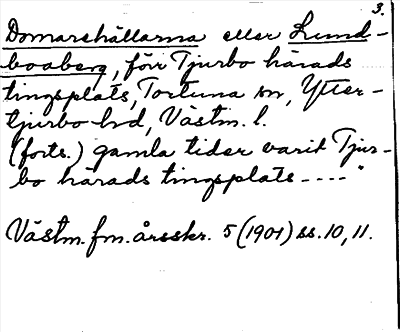 3.
Domarehällarna eller Lund-
boaberg, förr Tjurbo härads
tingsplats, Tortuna sn, Ytter-
tjurbo hd, Västm. l.
(forts.) gamla tider varit Tjur-
bo härads tingsplats - - - - "
Västm. fm. årsskr. 5 (1901) ss. 10, 11.